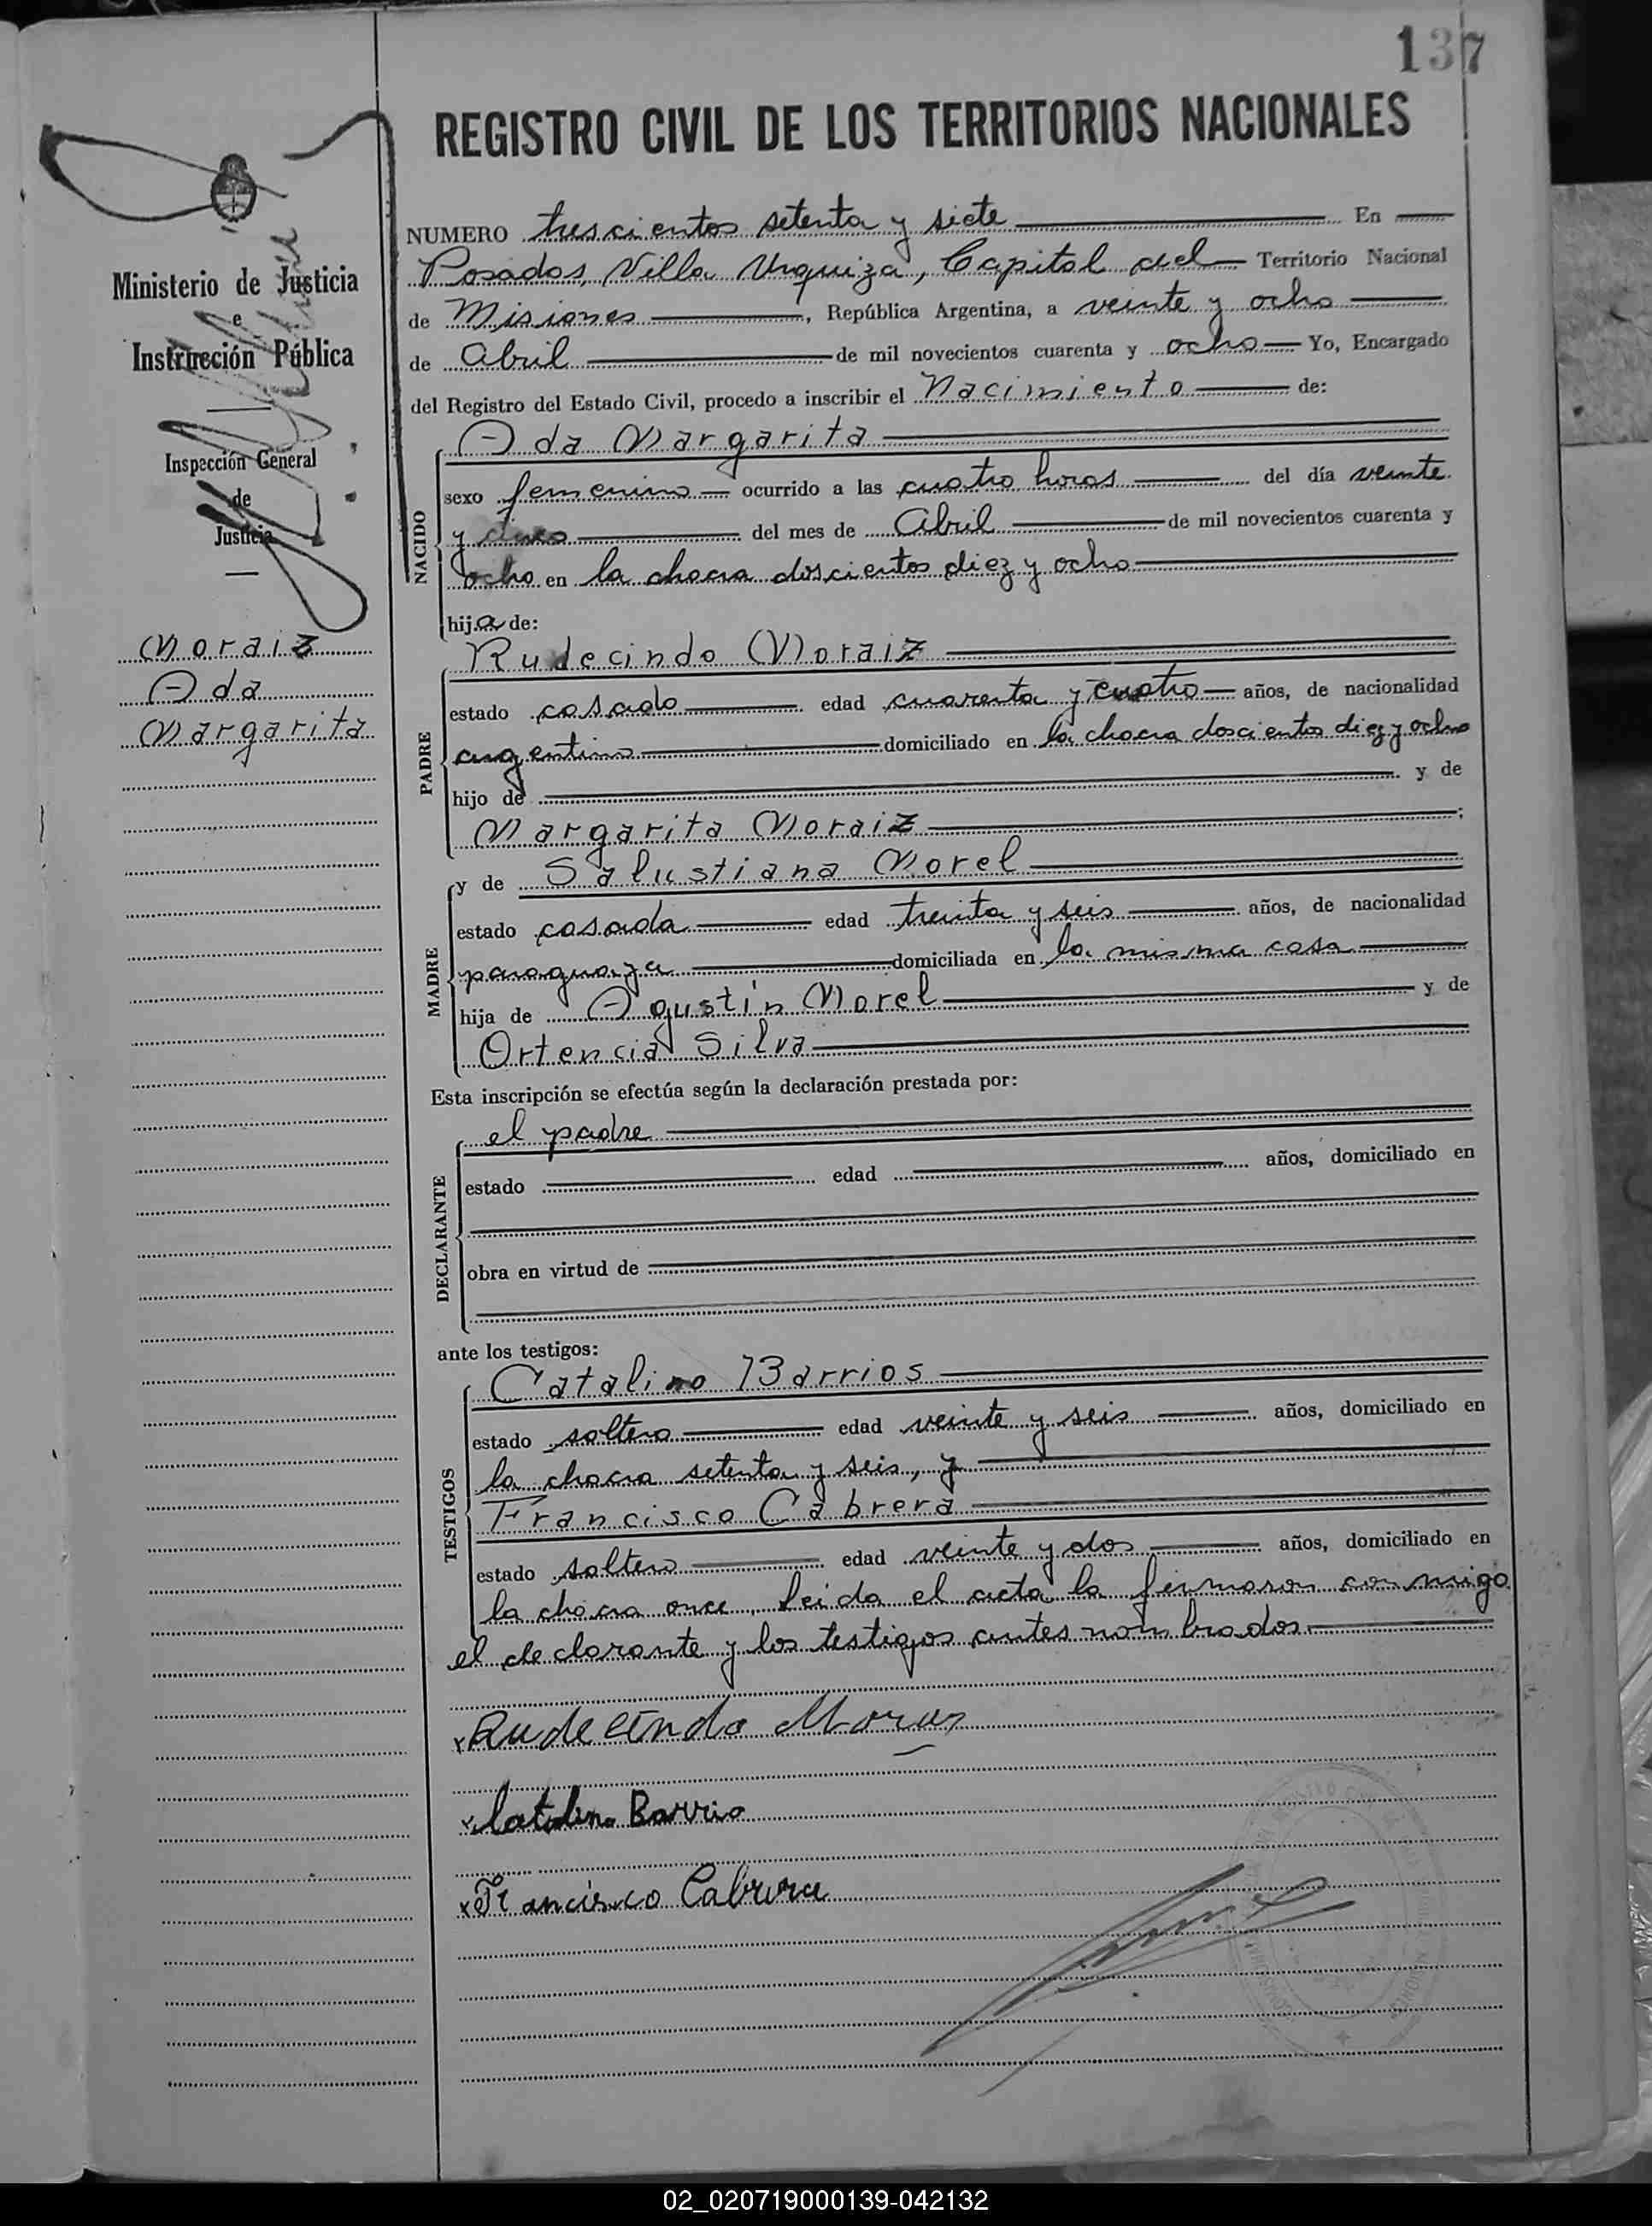 137
REGISTRO CIVIL DE LOS TERRITORIOS NACIONALES
Ministerio de Justicia
e
Instrucción Pública
Inspección General
de
Justicia
Moraiz
Ada
Margarita
NUMERO trescientos setenta y siete En
Posadas, Villa Urquiza, Capital del Territorio Nacional
de Misiones, República Argentina, a veinte y ocho
de Abril de mil novecientos cuarenta y ocho Yo, Encargado
del Registro del Estado Civil, procedo a inscribir el Nacimiento de:
NACIDO
Ada Margarita
sexo femenino ocurrido a las cuatro horas del día veinte
y cinco del mes de Abril de mil novecientos cuarenta y
ocho en la chacra doscientos diez y ocho
hija de:
PADRE
Rudecindo Moraiz
estado casado edad cuarenta y cuatro años, de nacionalidad
argentino domiciliado en la chacra doscientos diez y ocho
hijo de y de
Margarita Moraiz;
MADRE
y de Salustiana Morel
estado casada edad treinta y seis años, de nacionalidad
paraguaya domiciliada en la misma casa
hija de Agustín Morel y de
Ortencia Silva
Esta inscripción se efectúa según la declaración prestada por:
DECLARANTE
el padre
estado edad años, domiciliado en
obra en virtud de
ante los testigos:
TESTIGOS
Catalino Barrios
estado soltero edad veinte y seis años, domiciliado en
la chacra setenta y seis, y
Francisco Cabrera
estado soltero edad veinte y dos años, domiciliado en
la chacra once. Leida el acta la firmaron conmigo
el declarante y los testigos antes nombrados.
x Rudecindo
x Catalino Barrio
x Francisco Cabrera
02_020719000139-042132